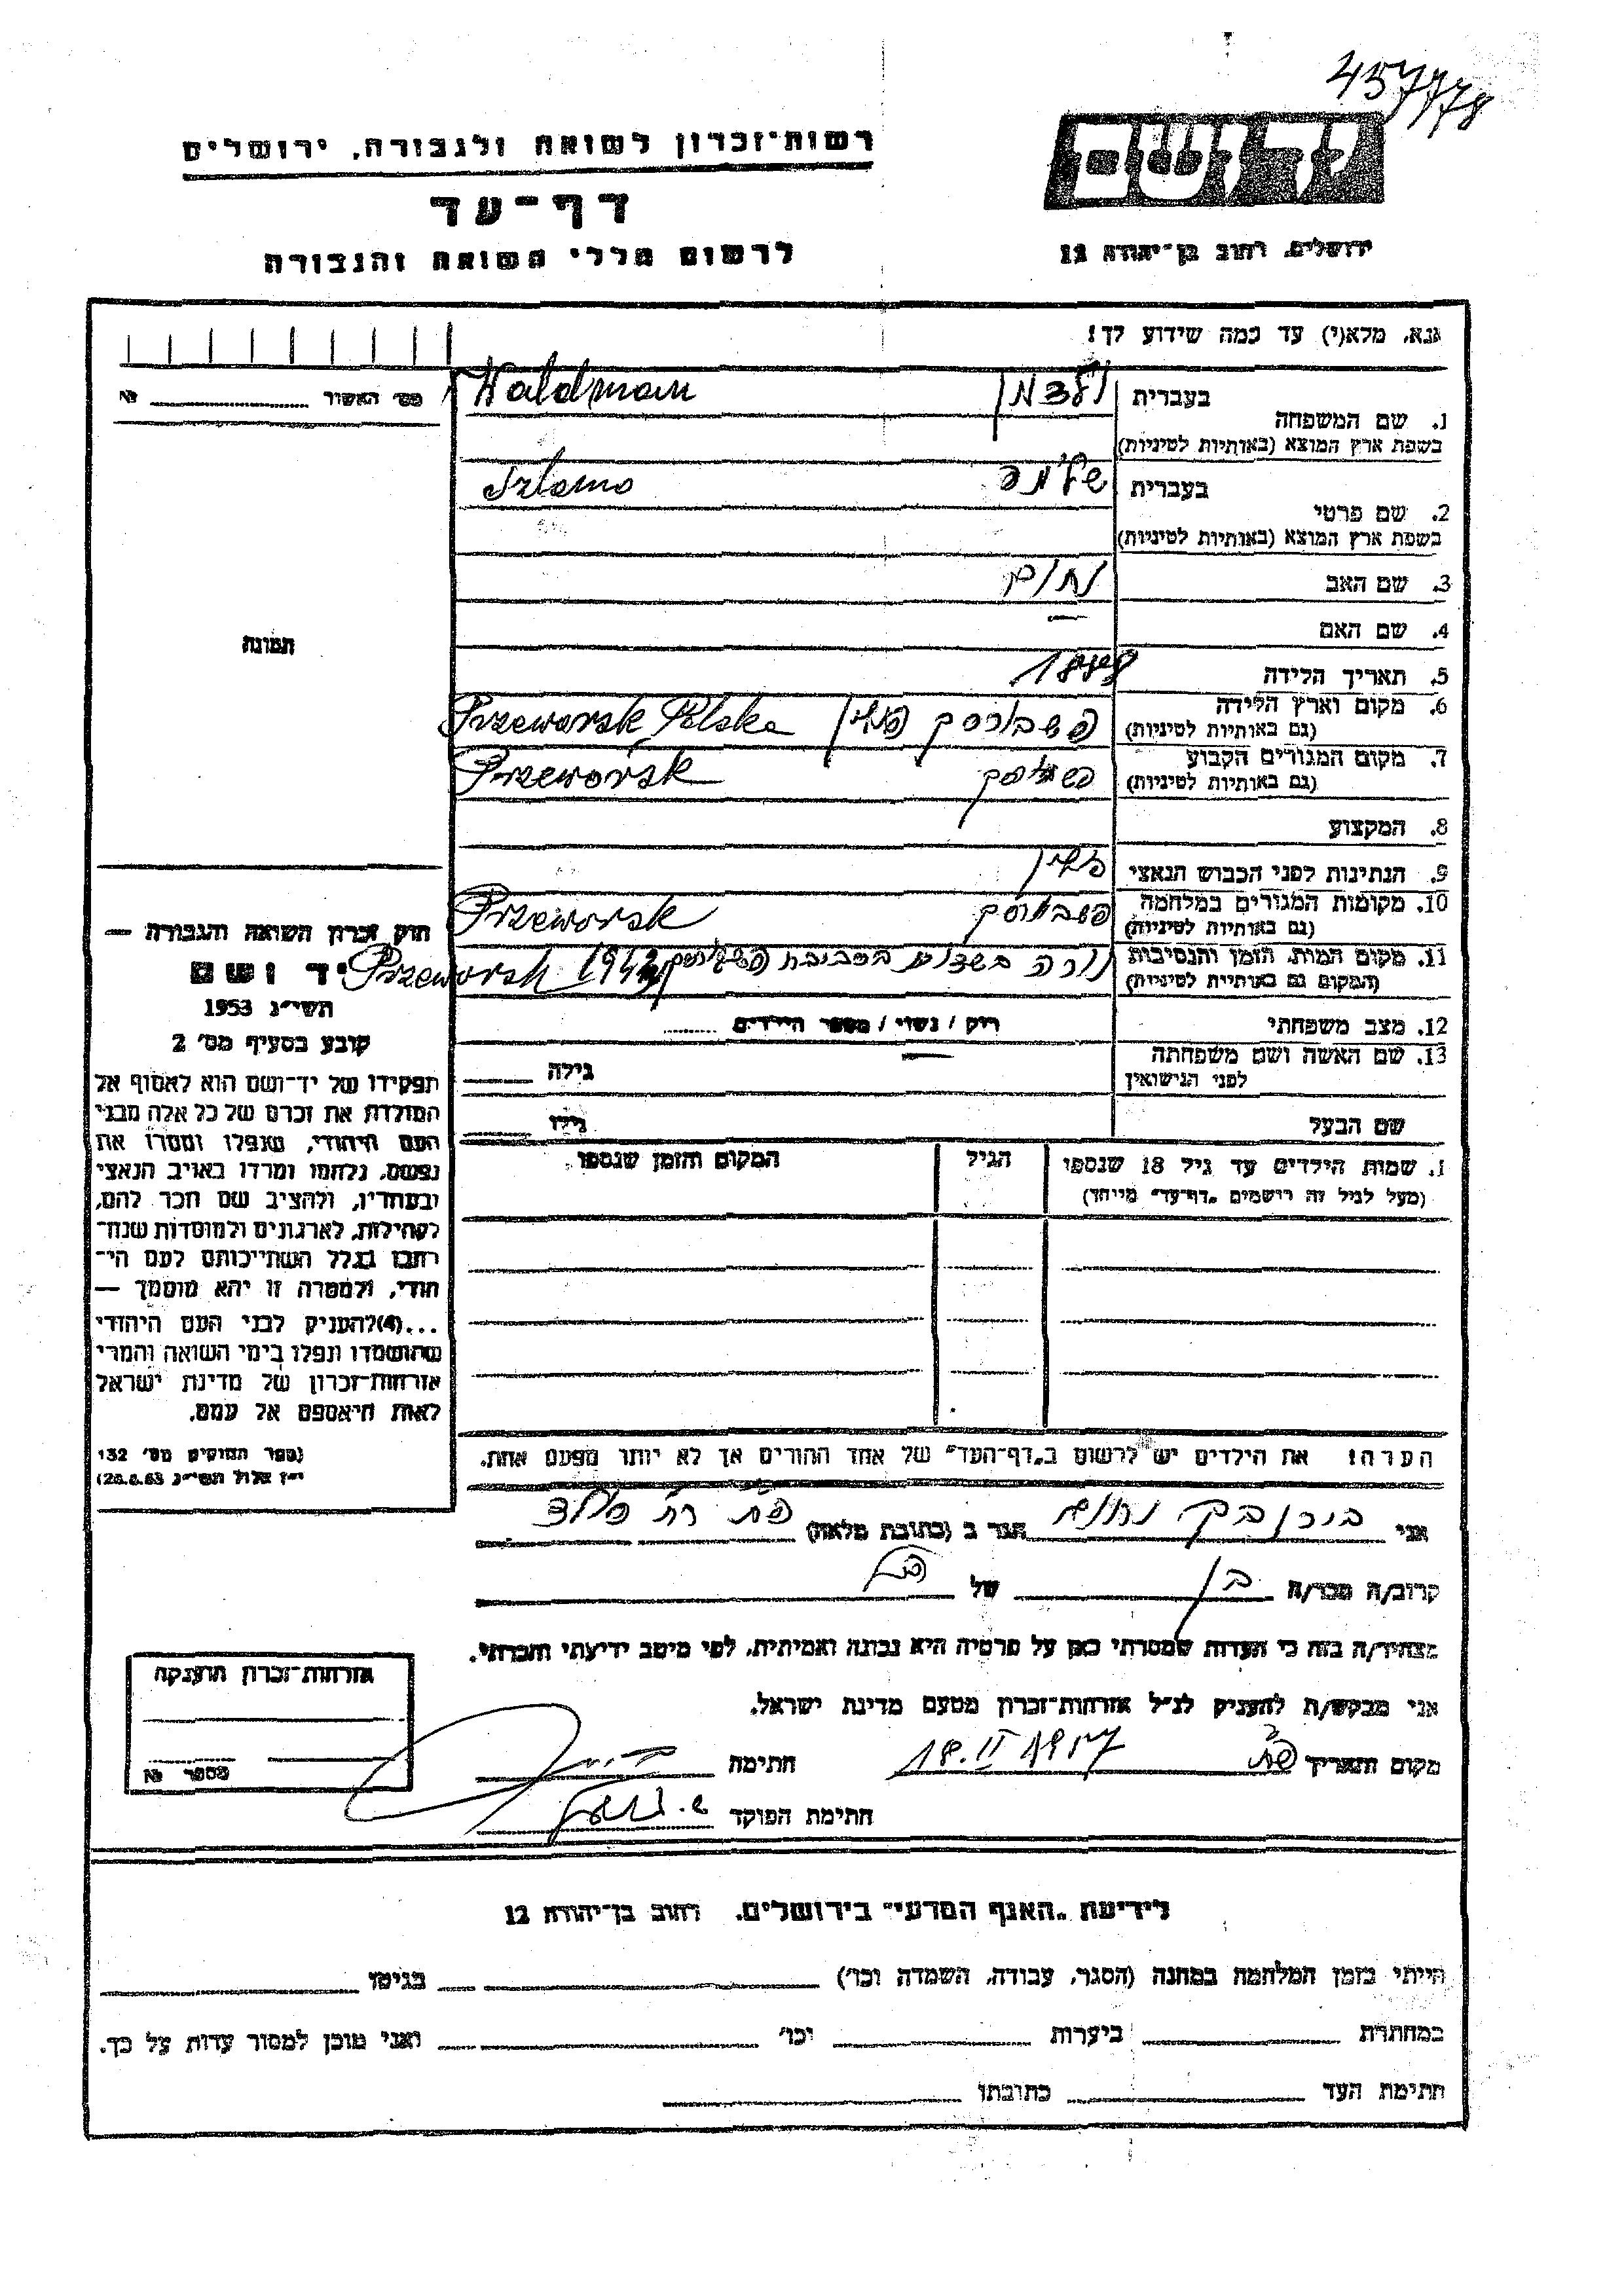 457778
רשות־זכרון לשואה ולגבורה, ירושלים
יד ושם
דף־עד
לרשום חללי השואה והגבורה
ירושלים, רחוב בן־יהודה 12
נא, מלא(י) עד כמה שידוע לך!
מס׳ האשור № 
1. שם המשפחה
בעברית ולדמן Waldman
בשפת ארץ המוצא (באותיות לטיניות)
2. שם פרטי
בעברית שלמה Szlomo
בשפת ארץ המוצא (באותיות לטיניות)
3. שם האב נחום
4. שם האם —
תמונה
5. תאריך הלידה 1888
6. מקום וארץ הלידה פשבורסק פולין Przeworsk Polska
(גם באותיות לטיניות)
7. מקום המגורים הקבוע Przeworsk
(גם באותיות לטיניות)
8. המקצוע
9. הנתינות לפני הכבוש הנאצי פולין
10. מקומות המגורים במלחמה פשבורסק Przeworsk
(גם באותיות לטיניות)
11. מקום המות, הזמן והנסיבות נורה בסביבת Przeworsk
(המקום גם באותיות לטיניות)
12. מצב משפחתי רווק / נשוי / מספר הילדים
13. שם האשה ושם משפחתה — גילה
לפני הנישואין
שם הבעל גילו
1. שמות הילדים עד גיל 18 שנספו הגיל המקום והזמן שנספו
(מעל לגיל זה רושמים „דף־עד״ מיוחד)
הערה: את הילדים יש לרשום ב„דף־העד״ של אחד ההורים אך לא יותר מפעם אחת.
חוק זכרון השואה והגבורה —
יד ושם
תשי״ג 1953
קובע בסעיף מס׳ 2
תפקידו של יד־ושם הוא לאסוף אל
המולדת את זכרם של כל אלה מבני
העם היהודי, שנפלו ומסרו את
נפשם, נלחמו ומרדו באויב הנאצי
ובעוזריו, ולהציב שם וזכר להם,
לקהילות, לארגונים ולמוסדות שנח־
רבו בגלל השתייכותם לעם הי־
הודי, ולמטרה זו יהא מוסמך —
...(4) להעניק לבני העם היהודי
שהושמדו ונפלו בימי השואה והמרי
אזרחות־זכרון של מדינת ישראל
לאות היאספם אל עמם.
(ספר החוקים מס׳ 132
י״ז אלול תשי״ג 28.8.53)
אני בירנבך נחום הגר ב (כתובת מלאה)
קרוב/ה מכר/ה בן של
מצהיר/ה בזה כי העדות שמסרתי כאן על פרטיה היא נכונה ואמיתית, לפי מיטב ידיעתי והכרתי.
אני מבקש/ת להעניק לנ״ל אזרחות־זכרון מטעם מדינת ישראל.
מקום ותאריך חתימה
חתימת הפוקד
אזרחות־זכרון הוענקה
מספר №
לידיעת „האגף המדעי״ בירושלים, רחוב בן־יהודה 12
הייתי בזמן המלחמה במחנה (הסגר, עבודה, השמדה וכו׳) בגיטו
במחתרת ביערות וכו׳ ואני מוכן למסור עדות על כך.
חתימת העד כתובתו